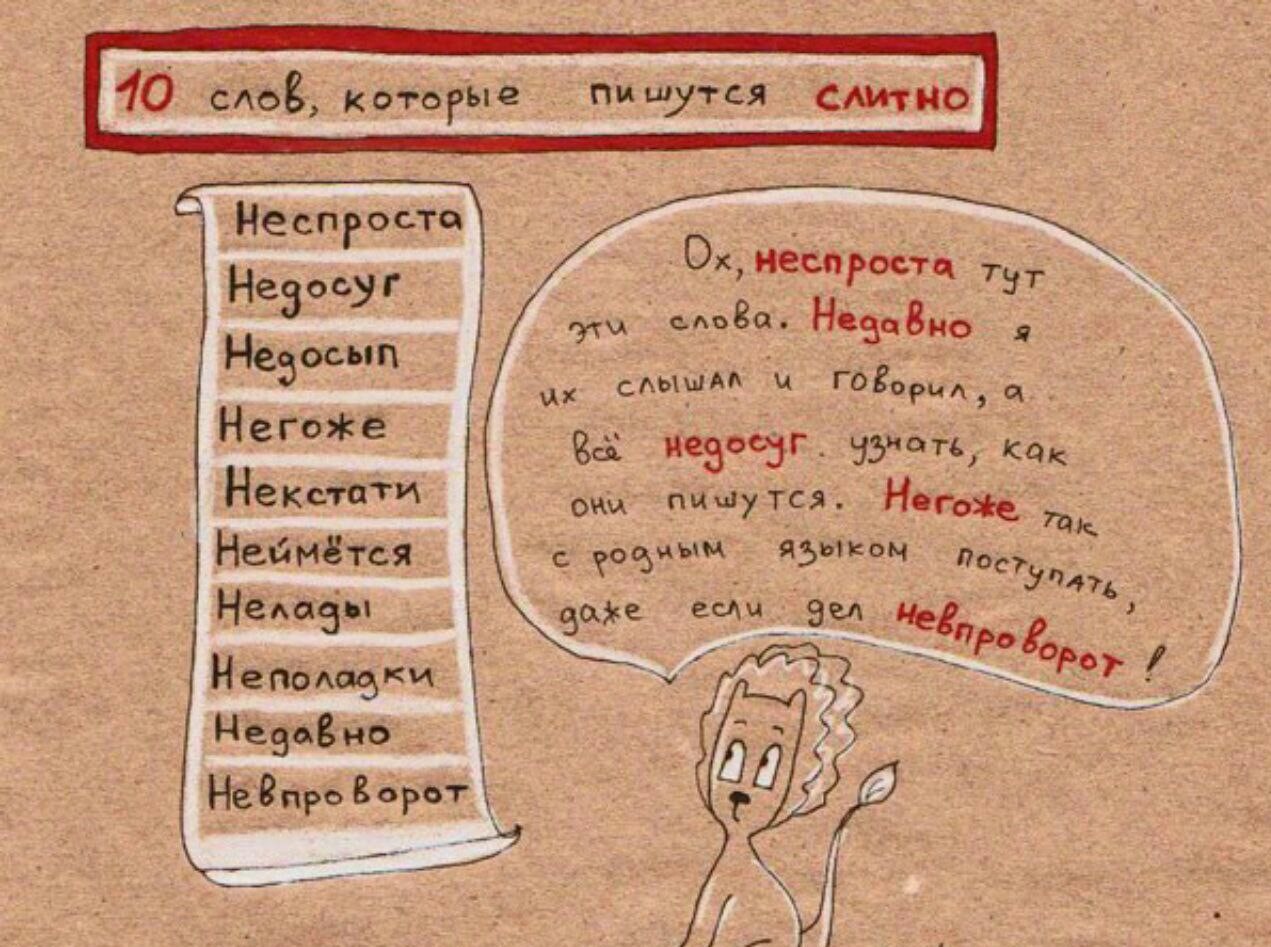 10 слов, которые пишутся слитно
Неспроста
Недосуг
Недосып
Негоже
Некстати
Неймётся
Нелады
Неполадки
Недавно
Невпроворот
Ох, неспроста тут
эти слова. Недавно я
их слышал и говорил, а
всё недосуг узнать, как
они пишутся. Негоже так
с родным языком поступать,
даже если дел невпроворот!